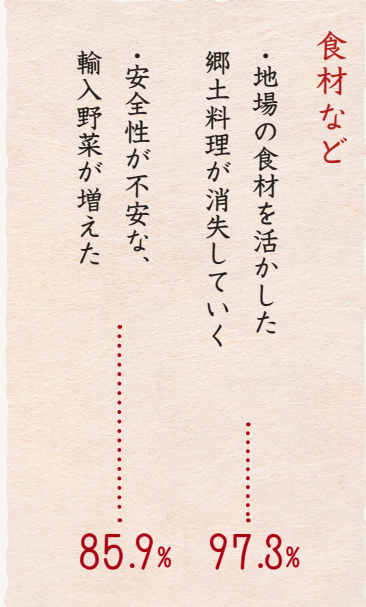 食材など
・地場の食材を活かした
郷土料理が消失していく
97.3%
・安全性が不安な、
輸入野菜が増えた
85.9%